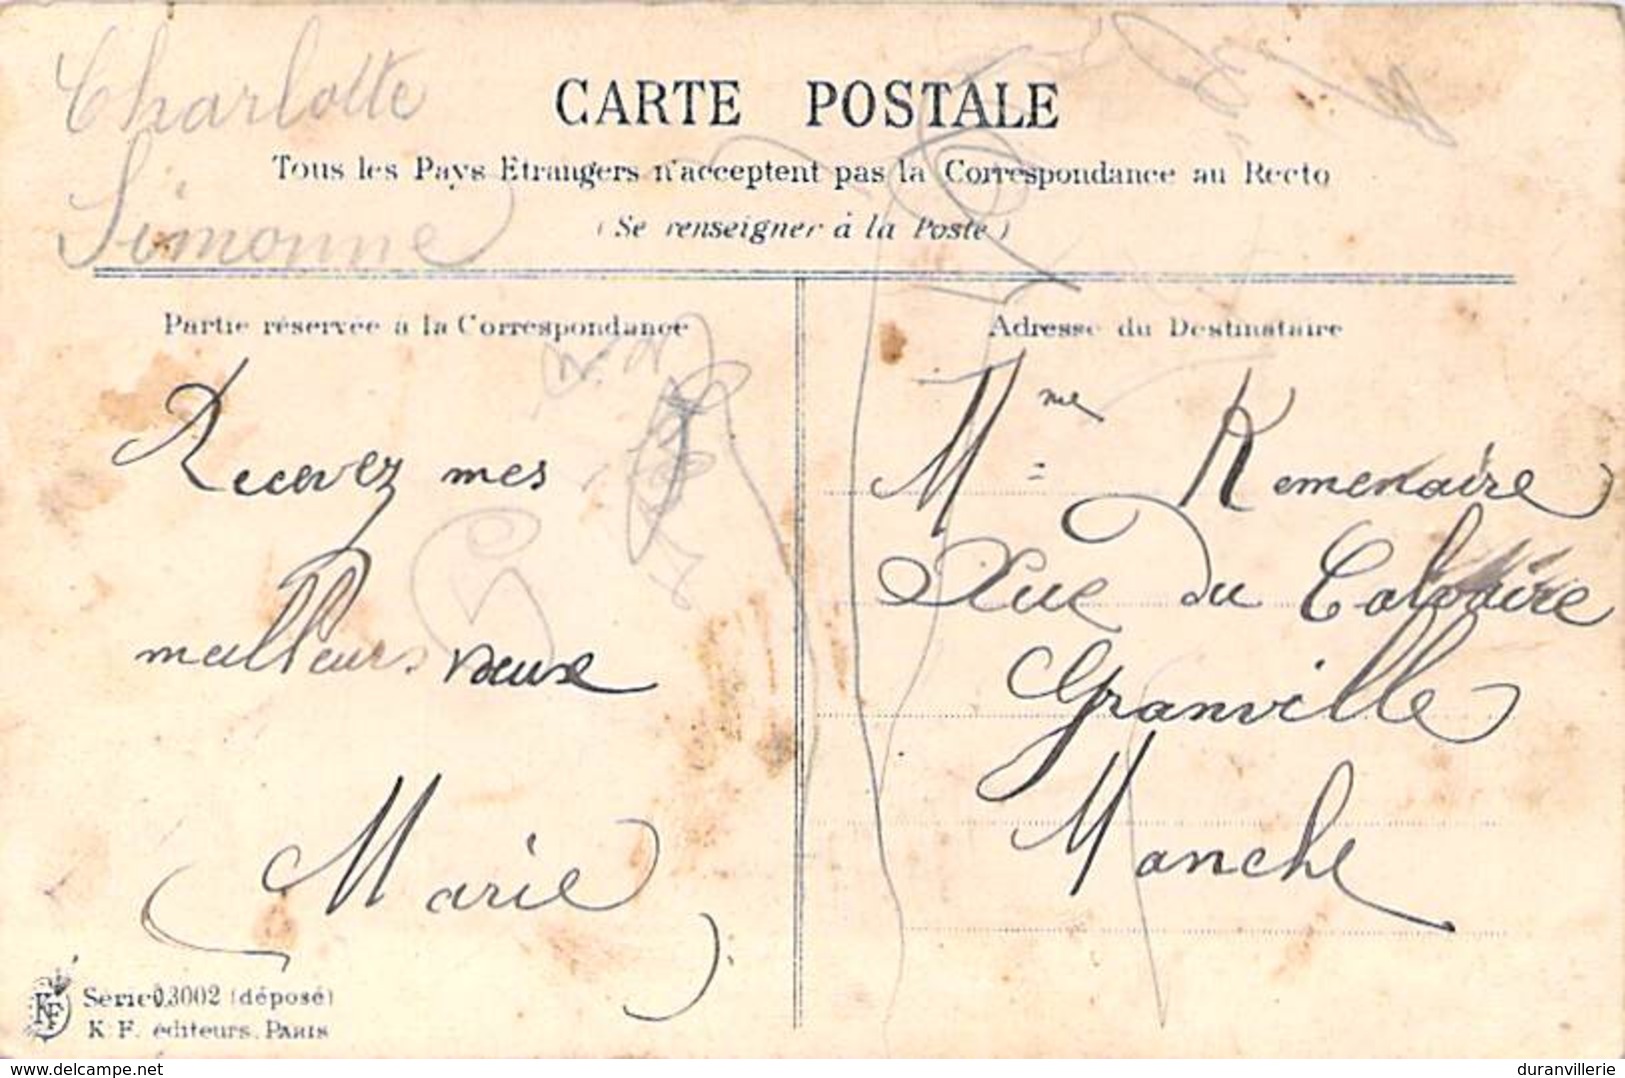 Charlotte
Simonne
CARTE POSTALE
Tous les Pays Etrangers n'acceptent pas la Correspondance au Recto
(Se renseigner à la Poste)
Partie réservée à la Correspondance
Recevez mes
meilleurs vœux
Marie
Adresse du Destinataire
Mme Remenaire
Rue du Calvaire
Granville
Manche
Série 3002 (déposé)
K F. éditeurs. PARIS
delcampe.net
duranvillerie